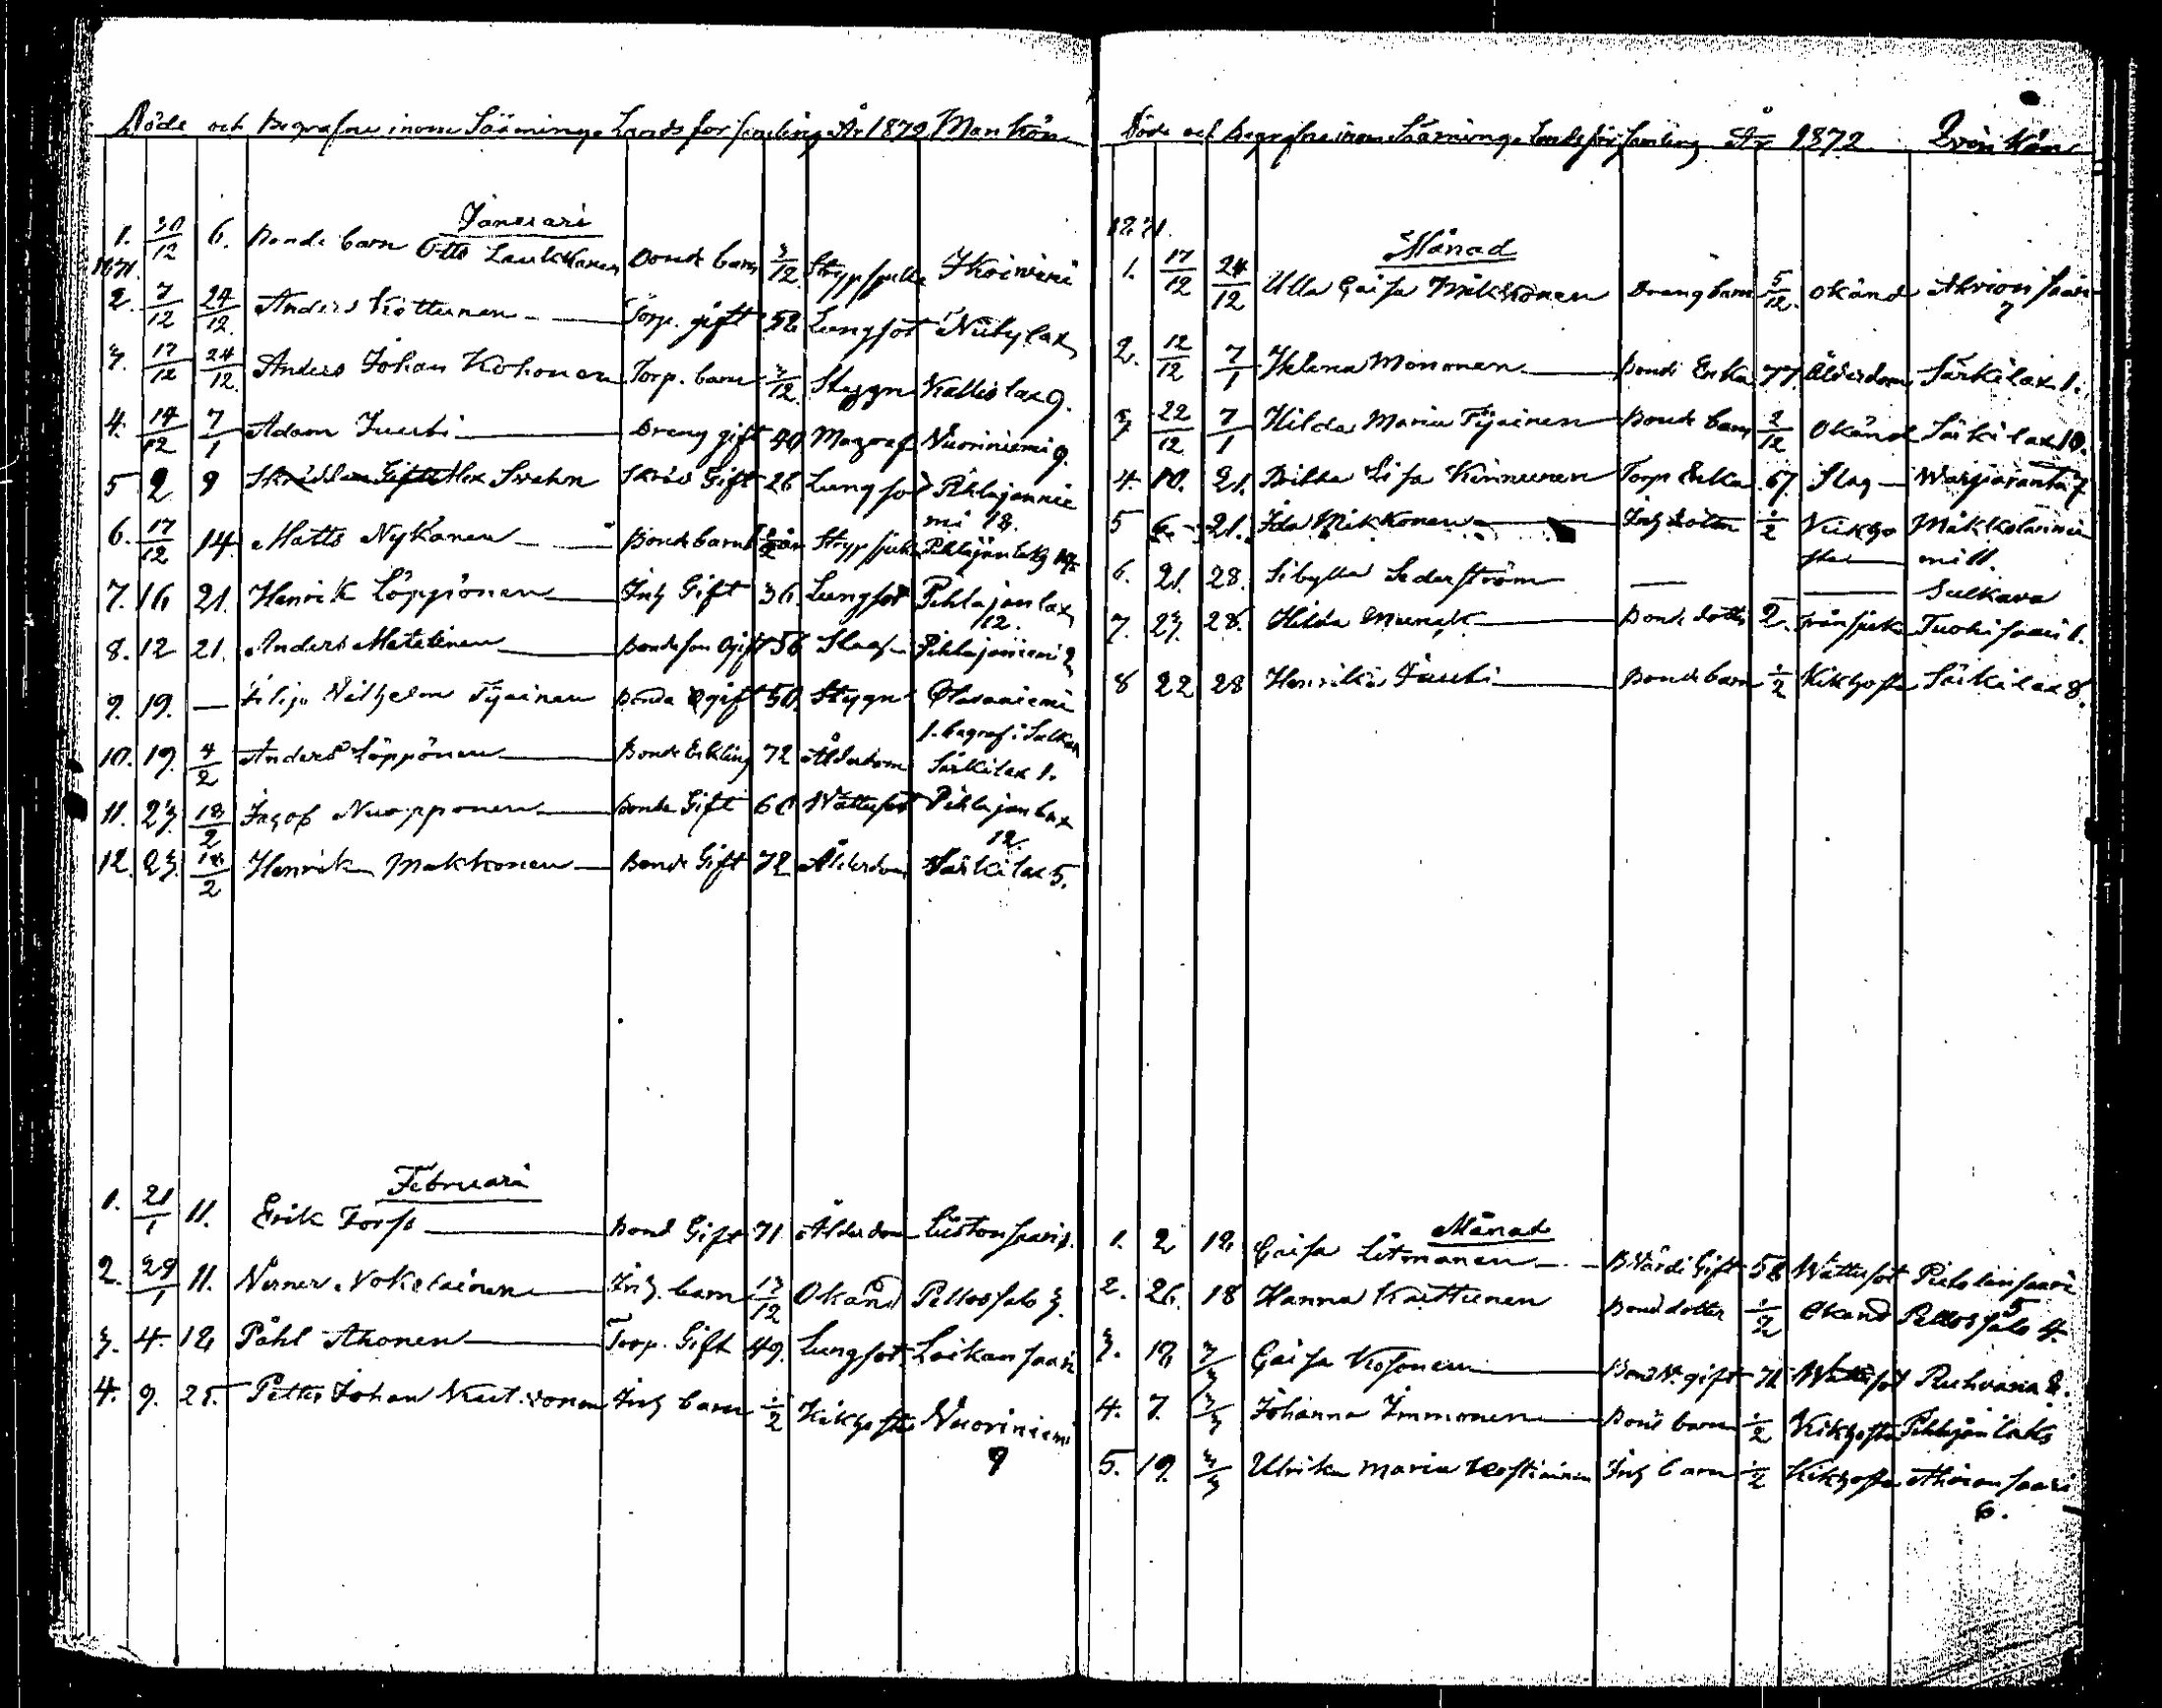 Döde och Begrafne inom Sääminge Landsförsamling År 1872 Mankön
Januari
1. 30/12 6. Bonde barn Otto Laukkanen Bonde barn 3/12 Strypsjuka Ikoiniemi
1871.
2. 7/12 24/12. Anders Kottunen Torp. gift 52. Lungsot Niitylax
3. 17/12 24/12. Anders Johan Kohonen Torp. barn 3/12. Styggn Kallislax 9.
4. 14/12 7/1 Adam Juuti Dreng gift 40 Magref Nuoriniemi 9.
5 2 9 Alex Svahn Skräd Gift 26 Lungsot Pihlajannie
mi 18.
6. 17/12 14 Matts Nykänen Bondebarn Strypsjuka Pihlajanlax
7. 16 21. Henrik Löppönen Inh Gift 36. Lungsot Pihlajanlax
12.
8. 12 21. Anders Matilainen Bondeson Ogift 56 Slag Pihlajaniemi 2
9. 19. — Filip Wilhelm Tyninen Bonde Ogift 50. Stygn
1. begraf i Sulkava
10. 19. 4/2 Anders Löppönen Bonde Enkling 72 Ålderdom Särkilax 1.
11. 23. 18/2 Jacob Nuopponen Bonde Gift 60 Wattusot Pihlajanlax
12.
12. 23. 18/2 Henrik Makkonen Bonde Gift 72 Ålderdom Särkilax 5.
Februari
1. 21/1 11. Erik Torss Bond Gift 71 Ålderdom Liistonsaari
2. 29/1 11. Werner Nokelainen Inh. barn 13/12 Okänd Pellossalo 3.
3. 4. 18 Påhl Ahonen Torp. Gift 49. Lungsot Loikansaari
4. 9. 25. Petter Johan Inh barn 1/2 Kikhosta Nuoriniemi
9
Döde och Begrafne inom Sääminge Landsförsamling År 1872 Qvinkön
1871.
Månad
1. 17/12 24/12 Ulla Caisa Mikkonen Dreng barn 5/12. Okänd Ahvionsaari
7
2. 12/12 7/1 Helena Mononen Bonde Enka 77 Ålderdom Särkilax 1.
3 22/12 7/1 Hilda Maria Tyninen Bonde barn 2/12 Okänd Särkilax 10.
4. 10. 21. Britta Lisa Kinnunen Torp Enka 67. Slag Warparanta 7
5 6 21. Ida Mikkonen Inh dotter 1/2 Kikho Makkolanie
sta mi 11.
6. 21. 28. Sibylla Sederström — — Sulkava
7. 23. 28. Hilda Munck Bonde dotter 2. Tuohisaari 1.
8 22 28 Henrika Juuti Bonde barn 1/2 Kikhosta Särkilax 8.
Månad
1. 2 12 Caisa Litmanen B. Värdi Gift 58 Wattusot Pietolansaari
5
2. 26. 18 Hanna Kaittunen Bond dotter 1/2 Okänd Pellossalo 4.
3. 18 3/3 Caisa Kosonen Bond W. gift 71 Wattusot Ruhvana 2.
4. 7. 3/3 Johanna Immonen Bond barn 1/2 Kikhosta Pihlajanlaks
5. 19. 3/3 Ulrika Maria Kostiainen Inh barn 1/2 Kikhosta Ahvionsaari
6.